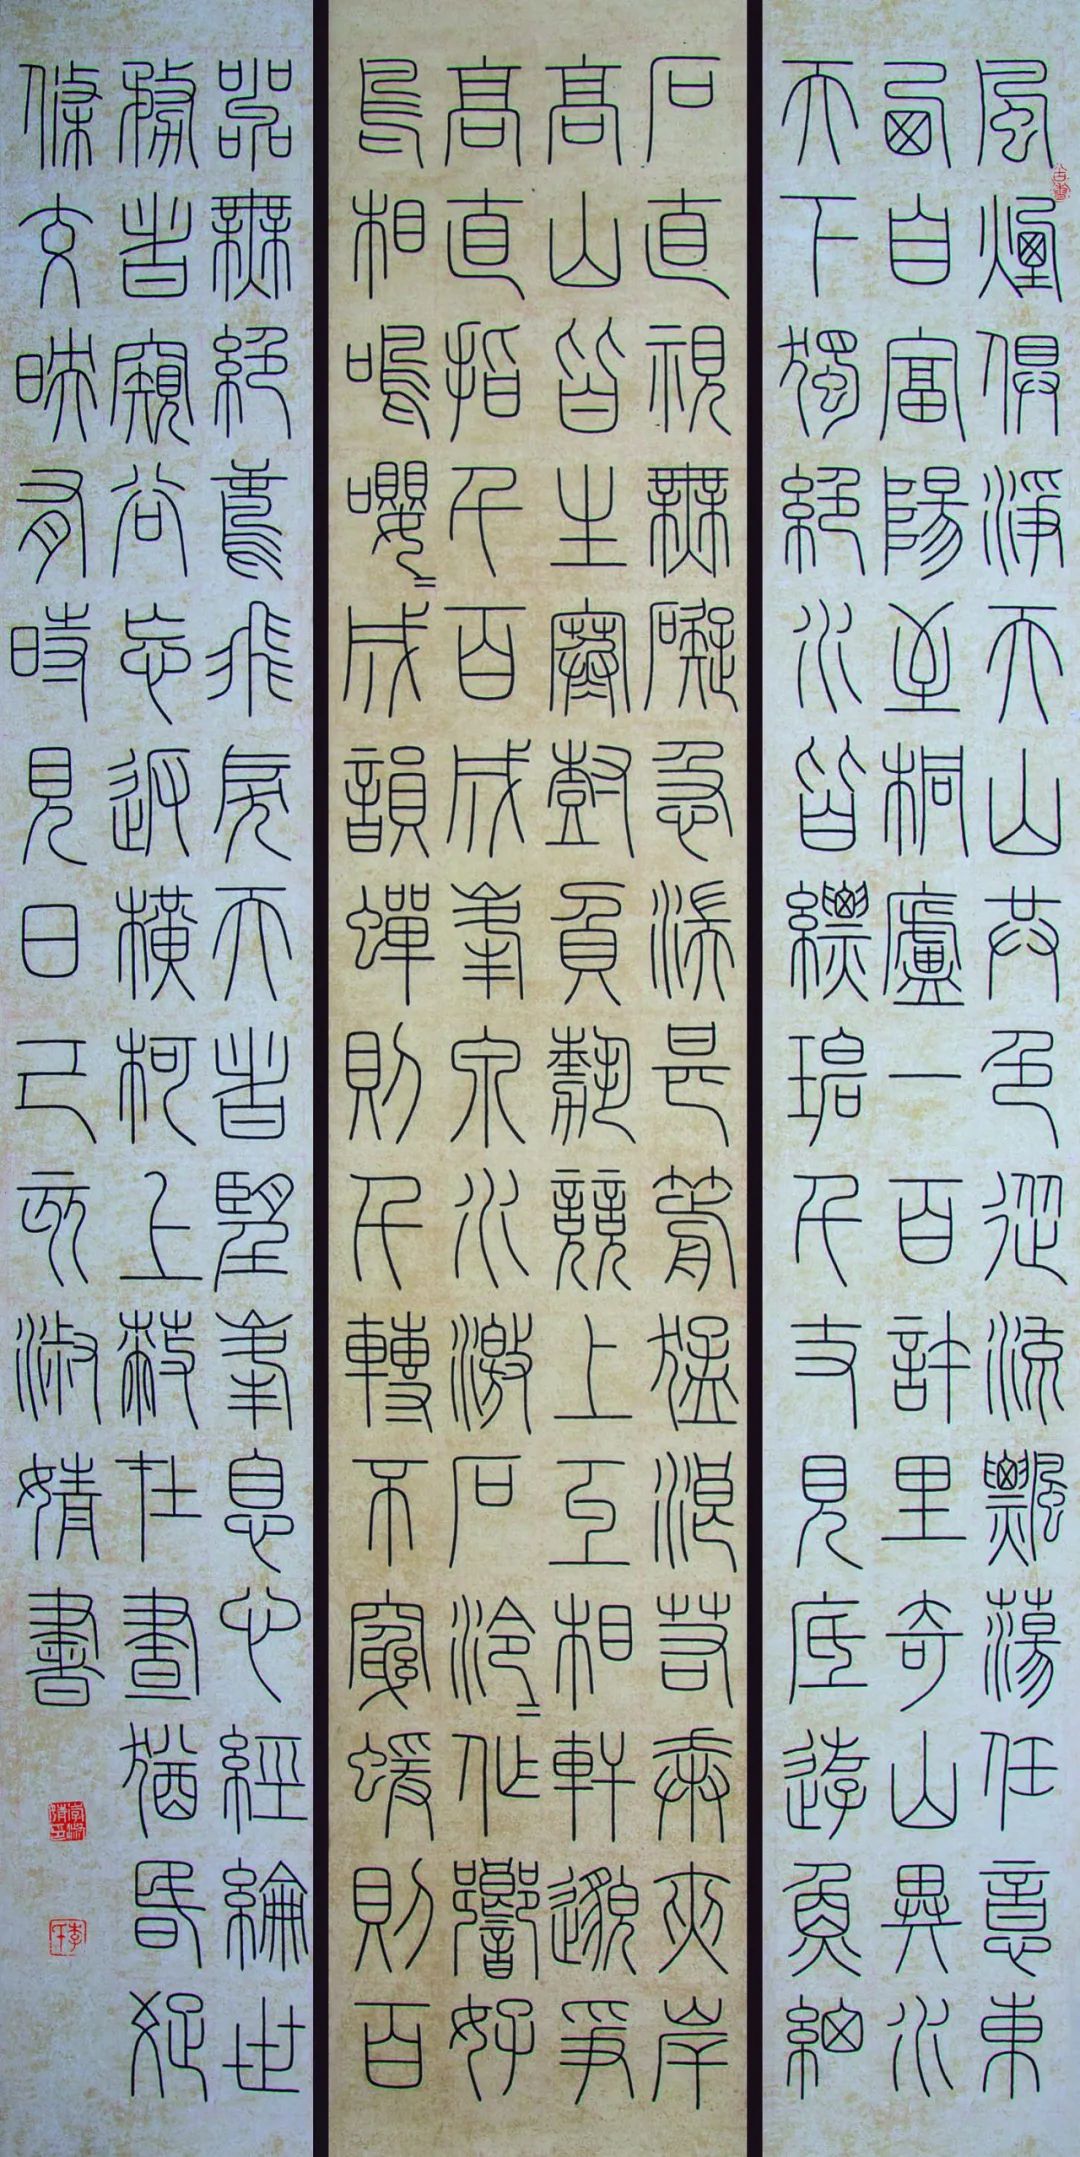 風煙俱淨天山共色從流飄蕩任意東
西自富陽至桐廬一百許里奇山異水
天下獨絕水皆縹碧千丈見底游魚細
石直視無礙急湍甚箭猛浪若奔夾岸
高山皆生寒樹負勢競上互相軒邈爭
高直指千百成峯泉水激石泠〻作響好
鳥相鳴嚶〻成韻蟬則千轉不窮蝯則百
嘂無絕鳶飛戾天者望峯息心經綸世
務者窺谷忘返橫柯上蔽在晝猶昏疏
條交映有時見日己亥淑婧書
李淑婧印